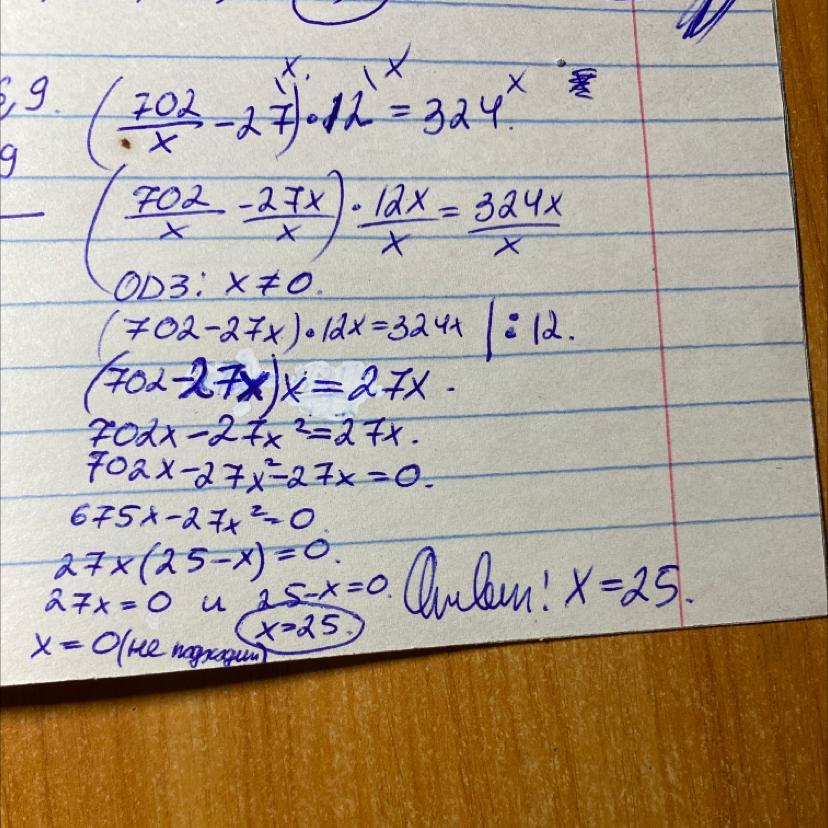 6,9.
(702/x - 27\x)·12\x = 324x
9
(702/x - 27x/x)·12x/x = 324x/x
ОДЗ: x≠0.
(702-27x)·12x=324x |:12.
(702-27x)x=27x.
702x-27x²=27x.
702x-27x²-27x=0.
675x-27x²=0
27x(25-x)=0.
27x=0 и 25-x=0. Ответ: x=25.
x=0(не подходит) x=25.